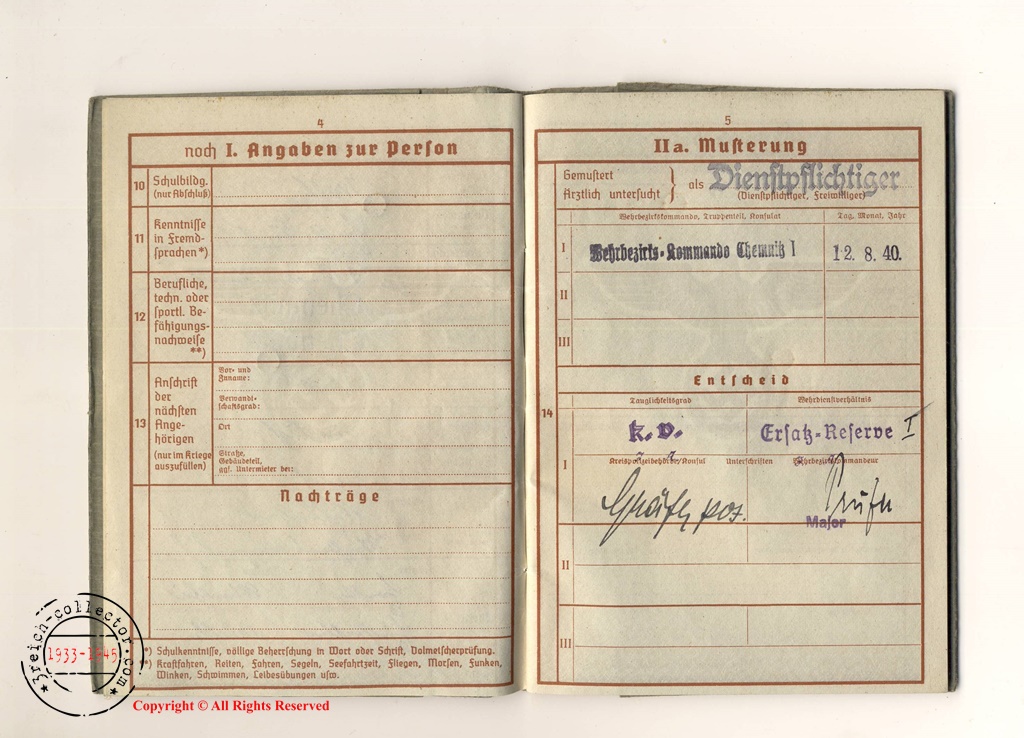 4
noch I. Angaben zur Person
10 Schulbildg.
(nur Abschluß)
11 Kenntnisse
in Fremd-
sprachen*)
12 Berufliche,
techn. oder
sportl. Be-
fähigungs-
nachweise
**)
13 Anschrift
der
nächsten
Ange-
hörigen
(nur im Kriege
auszufüllen)
Vor- und
Zuname:
Verwandt-
schaftsgrad:
Ort
Straße,
Gebäudeteil,
ggf. Untermieter bei:
Nachträge
*) Schulkenntnisse, völlige Beherrschung in Wort oder Schrift, Dolmetscherprüfung.
**) Kraftfahren, Reiten, Fahren, Segeln, Seefahrtzeit, Fliegen, Morsen, Funken,
Winken, Schwimmen, Leibesübungen usw.
5
IIa. Musterung
Gemustert
Ärztlich untersucht } als Dienstpflichtiger
(Dienstpflichtiger, Freiwilliger)
Wehrbezirkskommando, Truppenteil, Konsulat Tag, Monat, Jahr
I Wehrbezirks-Kommando Chemnitz I 12. 8. 40.
II
III
Entscheid
14
Tauglichkeitsgrad Wehrdienstverhältnis
k.v. Ersatz-Reserve I
I Kreispolizeibehörde/Konsul Unterschriften Wehrbezirkskommandeur
Major
II
III
3reich-collector.com
1933-1945
Copyright © All Rights Reserved